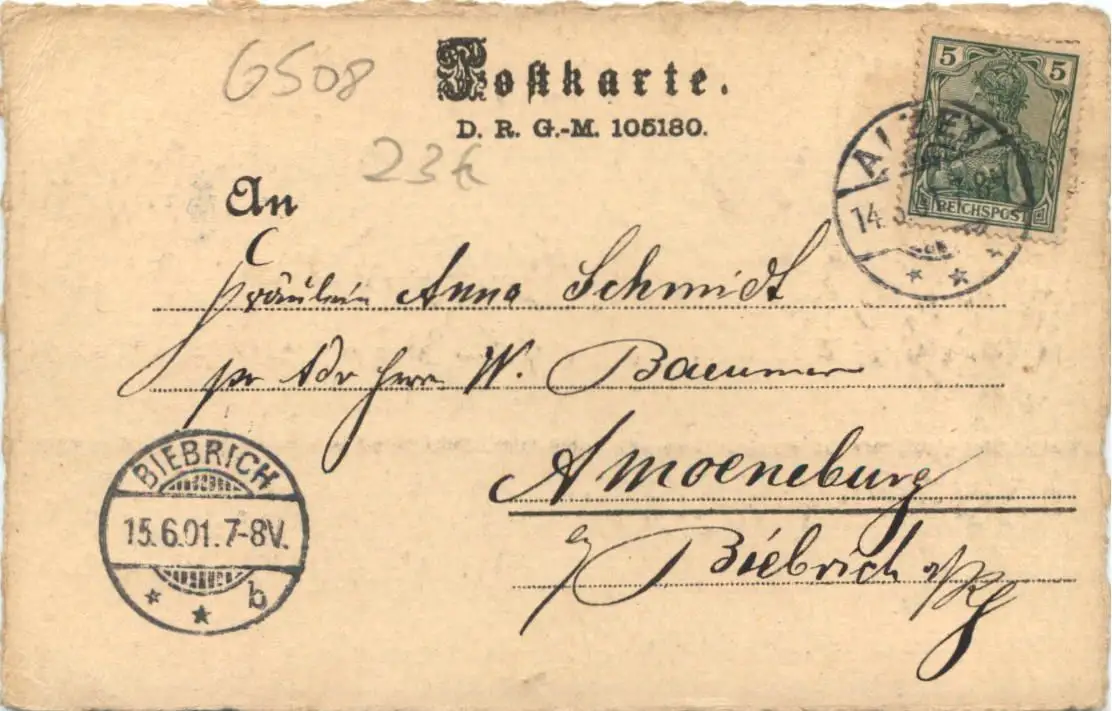 G508
Postkarte.
D. R. G.-M. 105180.
23 €
5 5
REICHSPOST
ALZEY
14.
An
Fräulein Anna Schmidt
pr Adr Herrn W. Baeumer
Amoeneburg
b/ Biebrich a/Rh
BIEBRICH
15.6.01.7-8V.
* * b